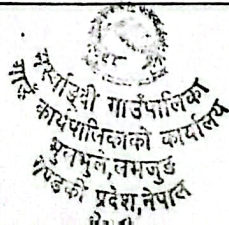 मर्स्याङ्दी गाउँपालिका
गाउँ कार्यपालिकाको कार्यालय
भुलभुले, लमजुङ
गण्डकी प्रदेश, नेपाल